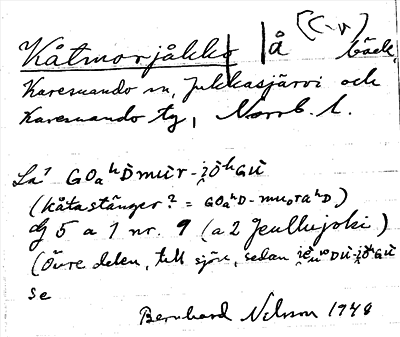 Kåtmorjåkko | å (C-v) bäck,
Karesuando sn, Jukkasjärvi och
Karesuando tg, Norrb. l.
La¹ GOₐʰDmùr-jòʰGù
(kåtastänger? = GOₐʰD-muₒraʰD)
Dj 5 a 1 nr. 9 (a 2 Jeullujoki)
(Övre delen, till sjön, sedan
se
Bernhard Nelson 1948